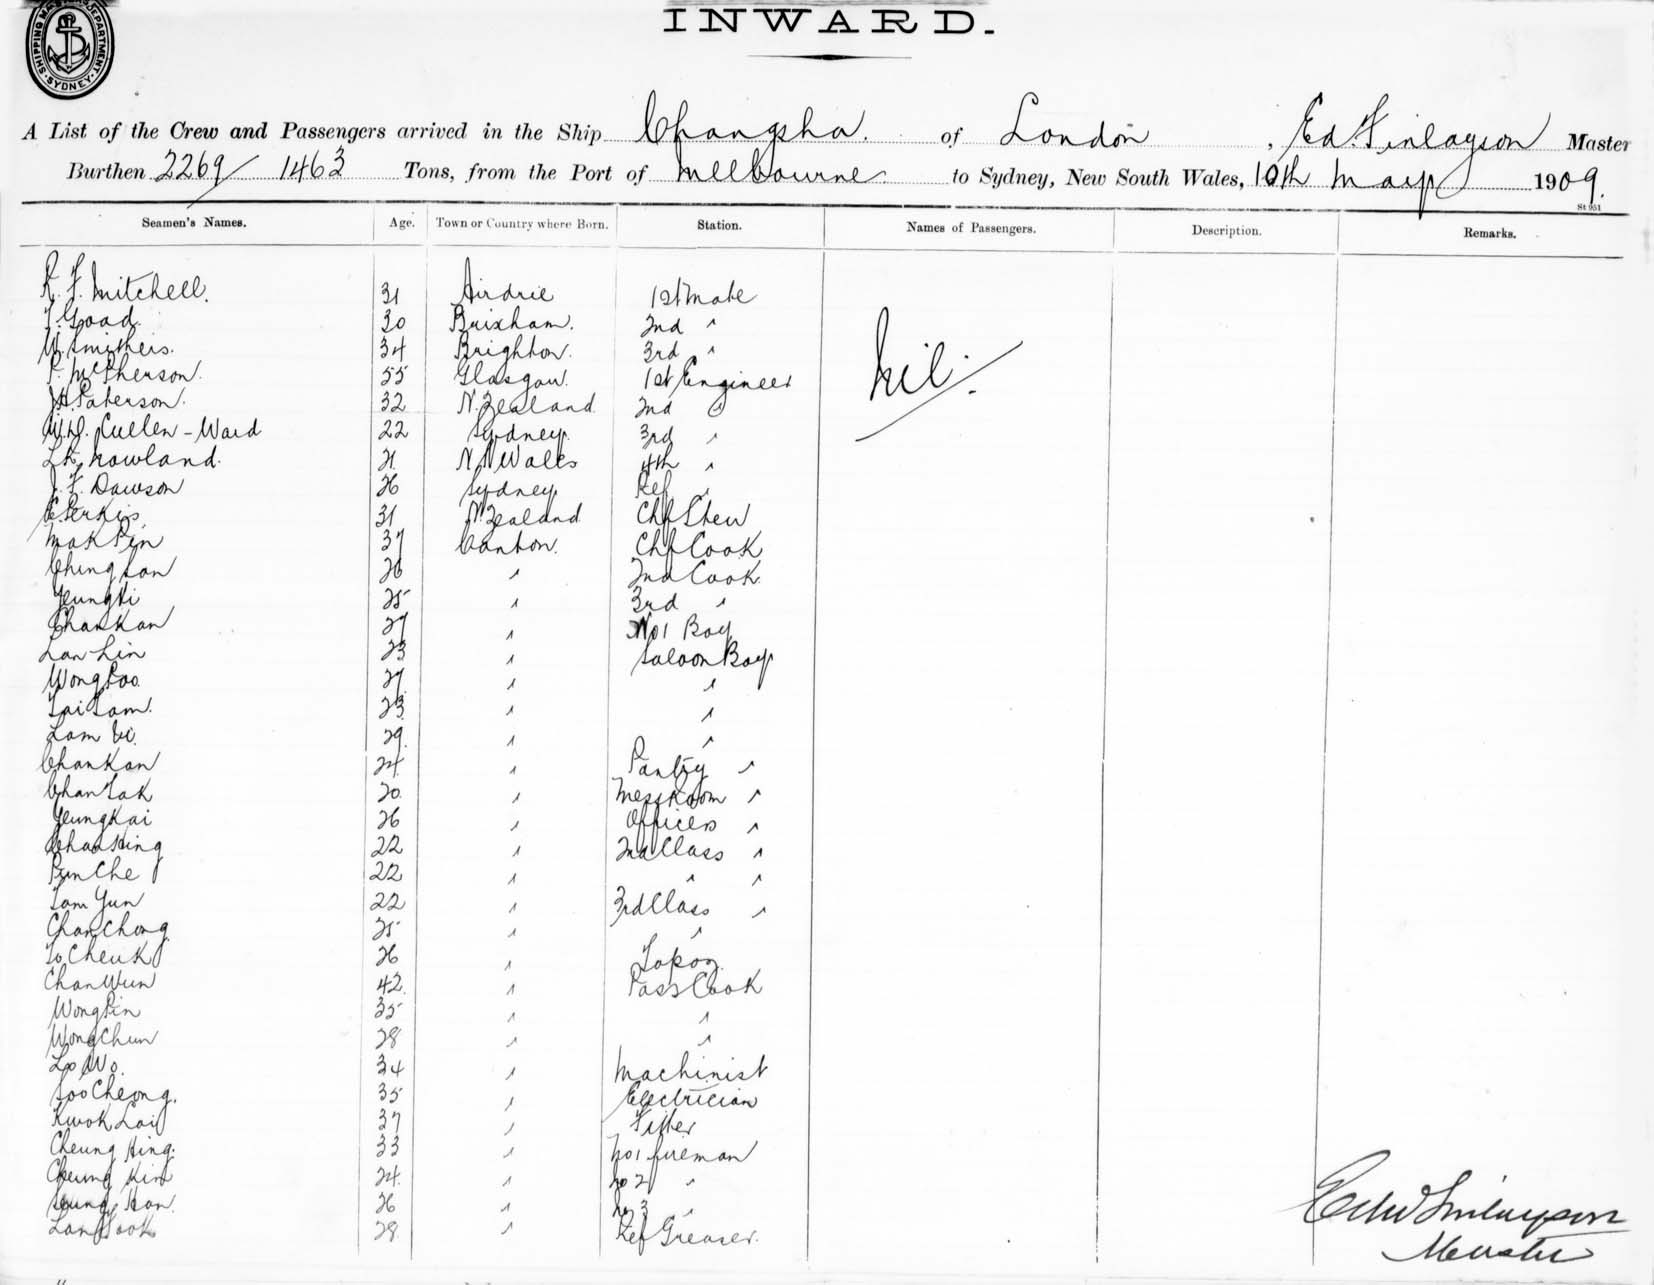 SHIPPING MASTER'S DEPARTMENT SYDNEY
INWARD.
A List of the Crew and Passengers arrived in the Ship Changsha. of London, Ed. Finlayson Master
Burthen 2269/1463 Tons, from the Port of Melbourne to Sydney, New South Wales, 10th May 1909.
St 951
Seamen's Names. Age. Town or Country where Born. Station. Names of Passengers. Description. Remarks.
R. F. Mitchell. 31 Airdrie 1st Mate
T. Goad. 30 Brixham. 2nd "
W. Smithers. 34 Brighton. 3rd "
P. McPherson. 55 Glasgow. 1st Engineer
nil.
J.H. Paterson. 32 N. Zealand 2nd "
W.D. Cullen-Ward 22 Sydney. 3rd "
Rowland. 21 N.S Wales 4th "
J. F. Dawson 26 Sydney Ref "
E. Perkis. 31 N. Zealand Chf Stew
Mak Pin 37 Canton. Chf Cook
Ching San 26 " 2nd Cook.
Yeung Ki 25 " 3rd "
Chan Kan 27 " No 1 Boy
Lan Lin 23 " Saloon Boy
Wong Soo. 27 " "
Tai Sam. 23 " "
Lam 29. " "
Chan Kan 24 " Pantry "
Chan Tak 20 " Messroom "
Yeung Kai 26 " Officers "
Chan Hing 22 " 2nd Class "
Pun Che 22 " " "
Tam Yun 22 " 3rd Class "
Chan Chong 25 " "
To Cheuk 26 " Topog.
Chan Wun 42. " Pass Cook
Wong Pin 35 " "
Wong Chun 28 " "
Lo Wo. 34 " Machinist
Soo Cheong. 35 " Electrician
Kwok Loi 37 " Fitter
Cheung Hing. 33 " No 1 fireman
Cheung Kim 24. " No 2 "
Yeung Hon. 26 " No 3 "
Lam Sook 28 " Ref Greaser.
Edw Finlayson
Master